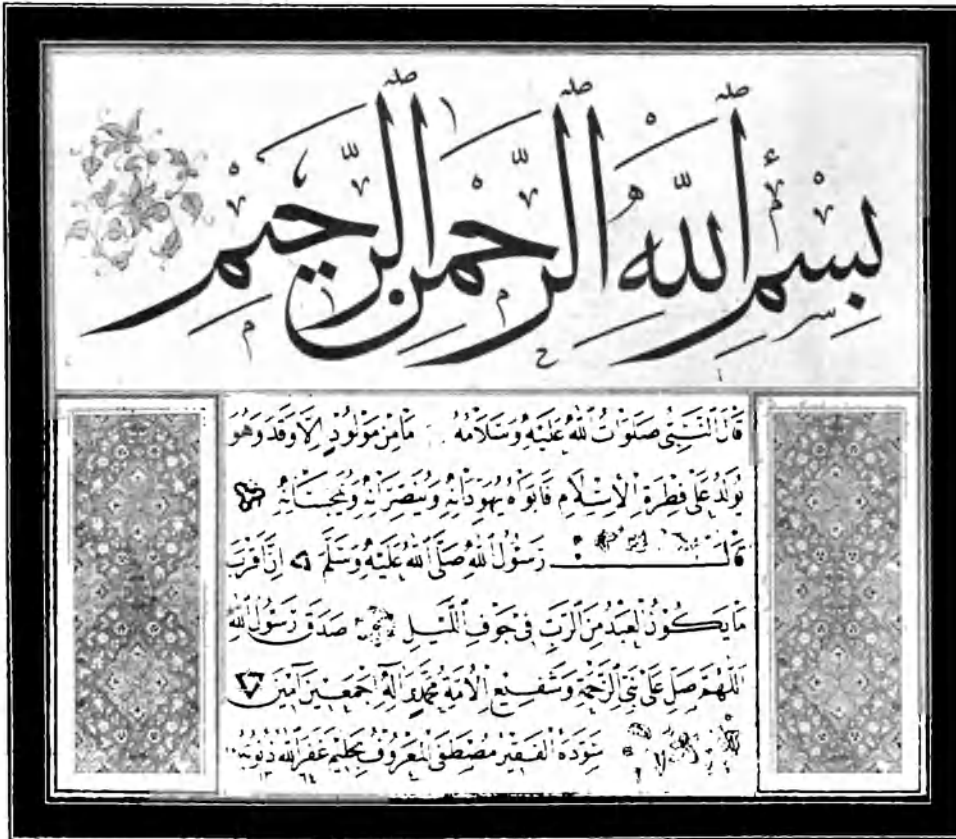 بِسْمِ اللهِ الرَّحْمٰنِ الرَّحِيْمِ
قَالَ النَّبِيُّ صَلَوَاتُ اللهِ عَلَيْهِ وَسَلَامُهُ مَا مِنْ مَوْلُودٍ اِلَّا وَقَدْ وَهُوَ
يُولَدُ عَلَى فِطْرَةِ الْاِسْلَامِ فَاَبَوَاهُ يُهَوِّدَانِهِ وَيُنَصِّرَانِهِ وَيُمَجِّسَانِهِ
قَالَ رَسُولُ اللهِ صَلَّى اللهُ عَلَيْهِ وَسَلَّمَ اِنَّ اَقْرَبَ
مَا يَكُونُ الْعَبْدُ مِنَ الرَّبِّ فِي جَوْفِ اللَّيْلِ صَدَقَ رَسُولُ اللهِ
اَللّٰهُمَّ صَلِّ عَلَى نَبِيِّ الرَّحْمَةِ وَشَفِيعِ الْاُمَّةِ مُحَمَّدٍ وَاٰلِهِ اَجْمَعِينَ اٰمِينَ
سَوَّدَهُ الْفَقِيرُ مُصْطَفَى الْمَعْرُوفُ بِحَلِيمْ غَفَرَ اللهُ ذُنُوبَهُ